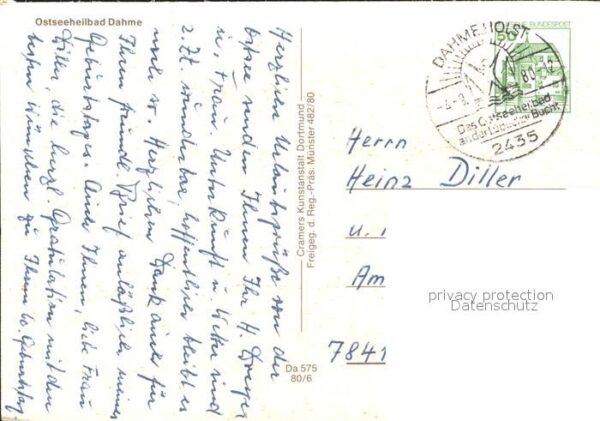 Ostseeheilbad Dahme
Herzliche Urlaubsgrüße von der
Ostsee senden Ihnen Ihr H.
u. Frau. Unterkunft u. Wetter sind
z. Zt. wunderbar, hoffentlich bleibt es
noch so. Herzlichen Dank auch für
Ihren freundl. Brief anläßlich meines
Geburtstages. Auch Ihnen, liebe Frau
Diller, die herzl. Gratulation mit den
besten Wünschen zu Ihrem 60. Geburtstag
Cramers Kunstanstalt Dortmund
Freigeg. d. Reg.-Präs. Münster 482/80
Da 575
80/6
DAHME, HOLST
Das Ostseeheilbad
an der Lübecker Bucht
2435
BUNDESPOST
Herrn
Heinz Diller
u.
Am
7841
privacy protection
Datenschutz